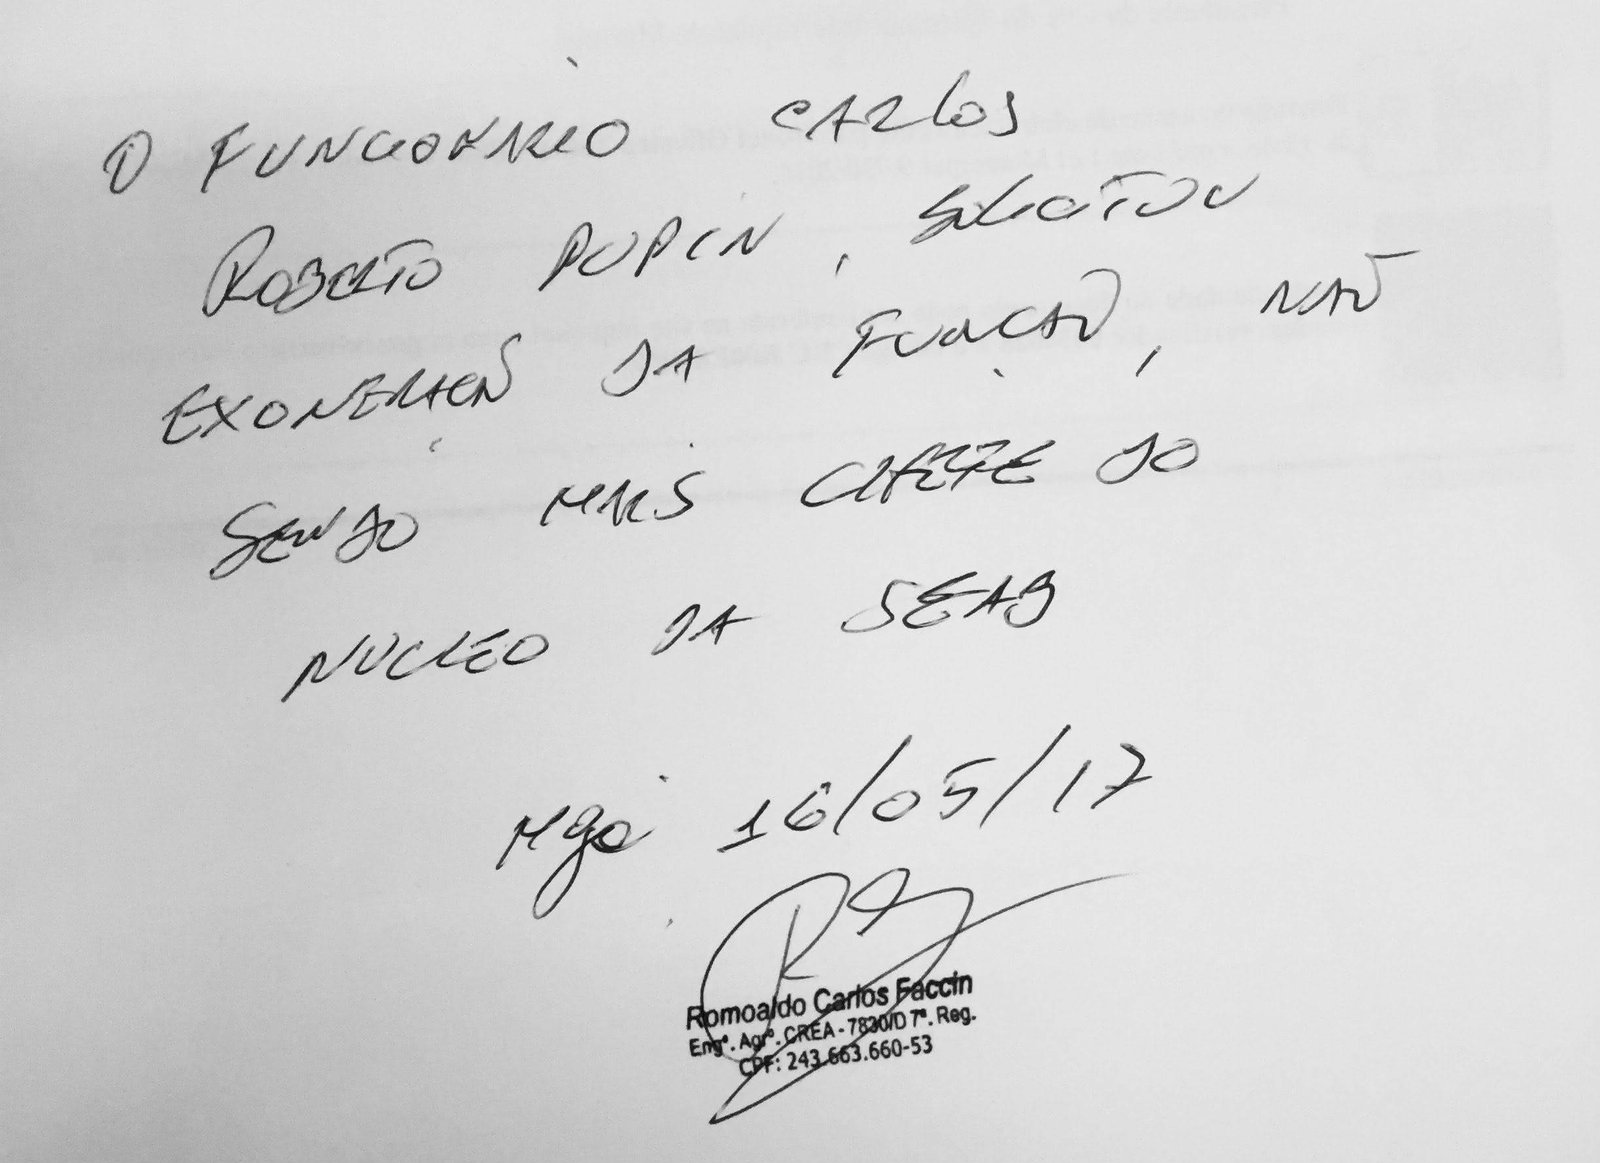 O FUNCIONARIO CARLOS
ROBERTO PUPIN, SOLICITOU
EXONERAÇÃO DA FUNÇÃO, NÃO
SENDO MAIS CHEFE DO
NUCLEO DA SEAB
Mgá 16/05/17
Romoaldo Carlos Faccin
Engº. Agrº. CREA - 7830/D 7ª. Reg.
CPF: 243.663.660-53